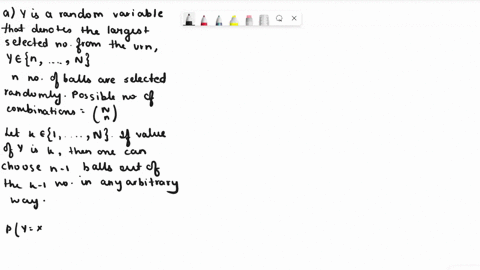 a) Y is a random variable
that denotes the largest
selected no. from the urn,
Y∈{n, ...., N}
n no. of balls are selected
randomly. Possible no of
combinations = (N n)
Let k∈{1, ...., N}. If value
of Y is k, then one can
choose n-1 balls out of
the k-1 no. in any arbitrary
way.
P(Y=x